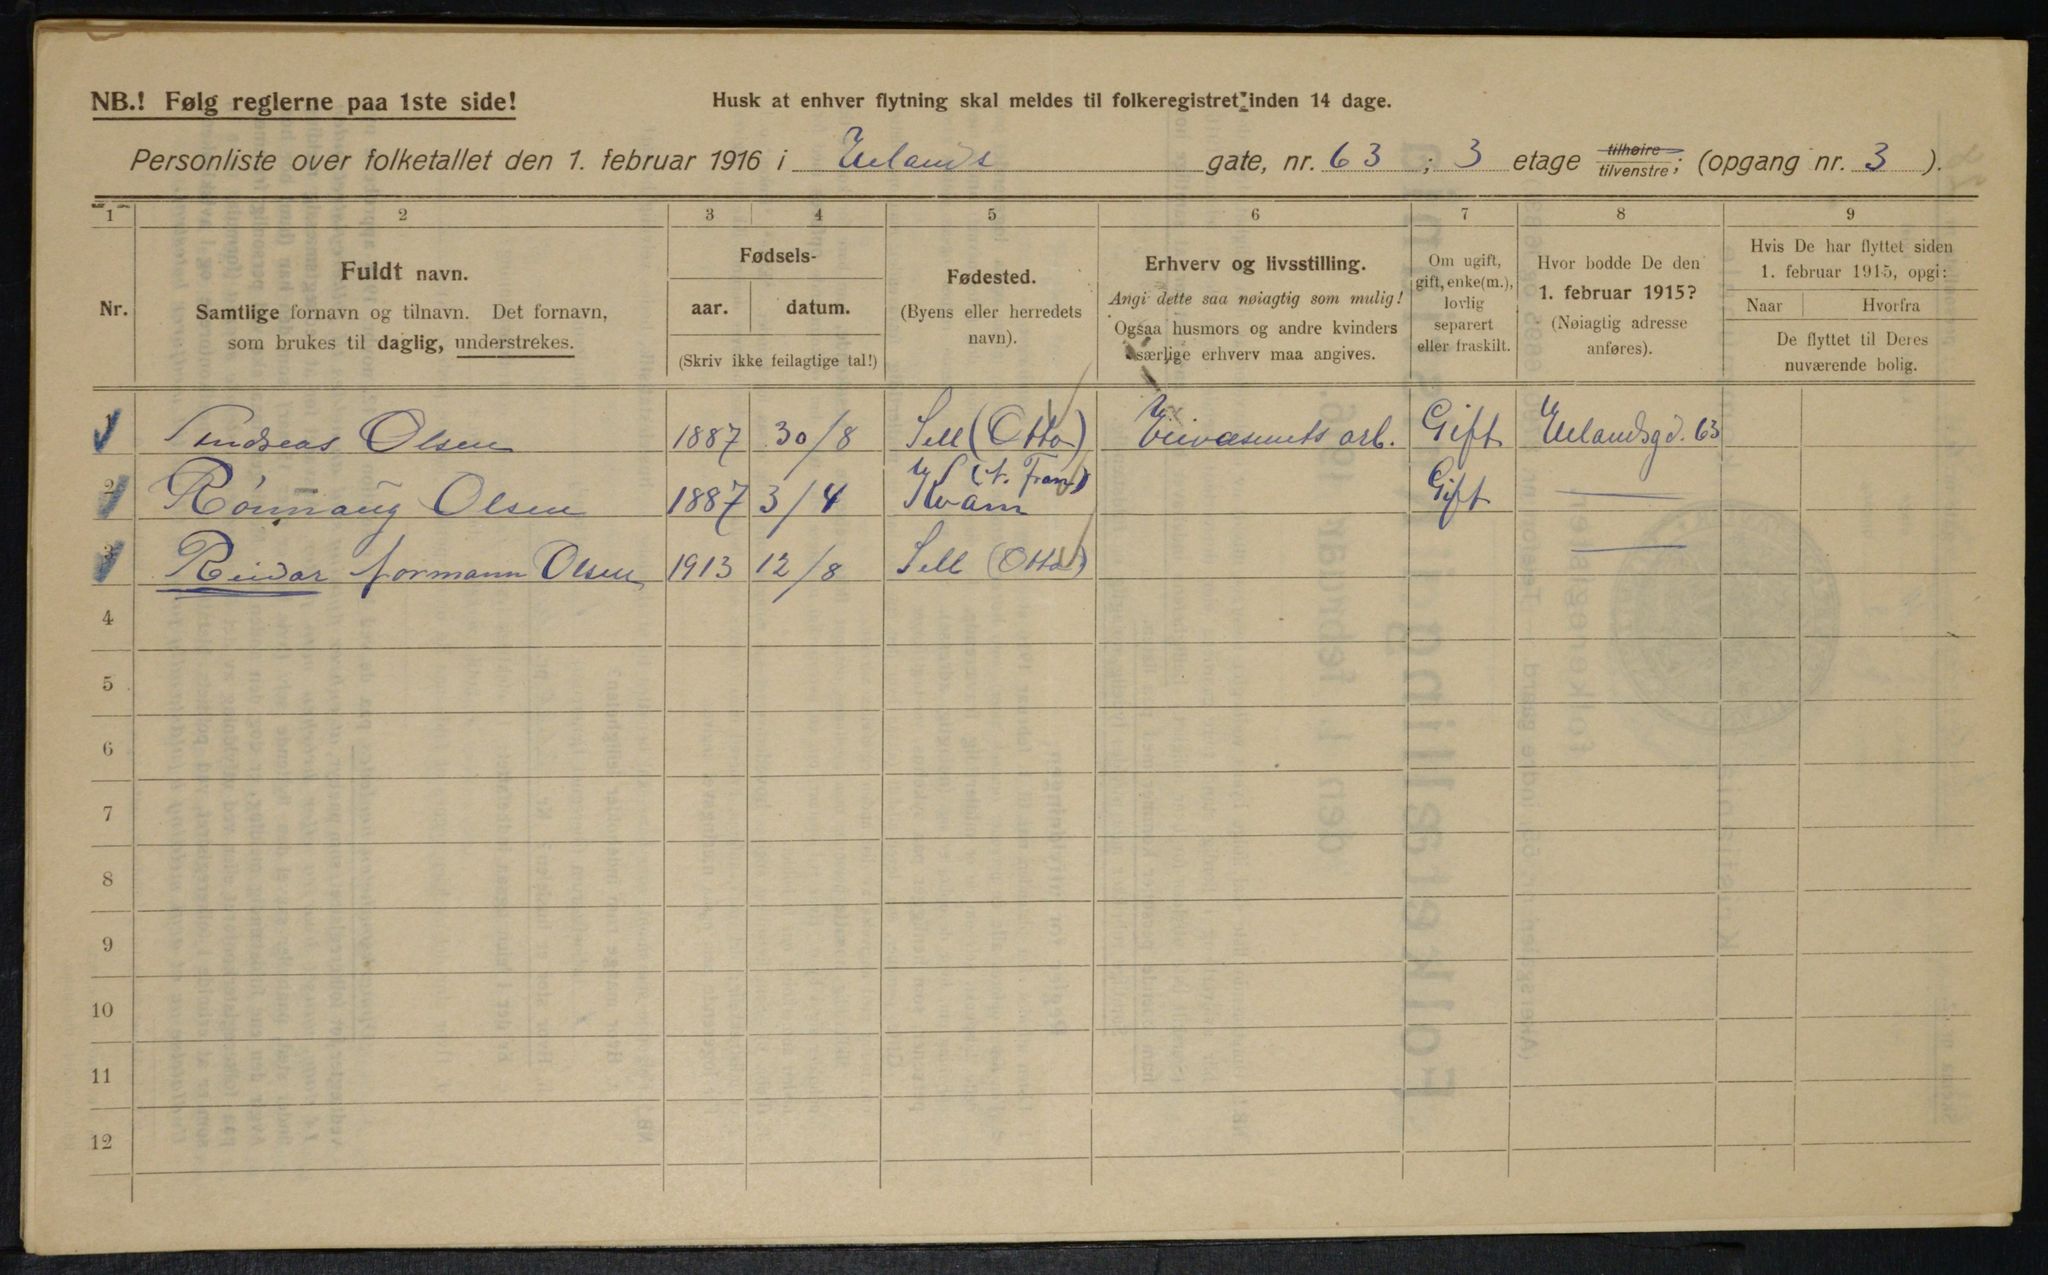 NB.! Følg reglerne paa 1ste side!
Husk at enhver flytning skal meldes til folkeregistret inden 14 dage.
Personliste over folketallet den 1. februar 1916 i Uelands gate, nr. 63 ; 3 etage tilhøire tilvenstre; (opgang nr. 3 ).
1 2 3 4 5 6 7 8 9
Nr.
Fuldt navn.
Samtlige fornavn og tilnavn. Det fornavn,
som brukes til daglig, understrekes.
Fødsels-
aar. datum.
(Skriv ikke feilagtige tal!)
Fødested.
(Byens eller herredets
navn).
Erhverv og livsstilling.
Angi dette saa nøiagtig som mulig!
Ogsaa husmors og andre kvinders
særlige erhverv maa angives.
Om ugift,
gift, enke(m.),
lovlig
separert
eller fraskilt.
Hvor bodde De den
1. februar 1915?
(Nøiagtig adresse
anføres).
Hvis De har flyttet siden
1. februar 1915, opgi:
Naar Hvorfra
De flyttet til Deres
nuværende bolig.
1 Andreas Olsen 1887 30/8 Sell (Otta) arb. Gift Uelandsgd. 63
2 Rönnaug Olsen 1887 3/4 Kvam (N. Fron) Gift —
3 Reidar Normann Olsen 1913 12/8 Sell (Otta) —
4
5
6
7
8
9
10
11
12